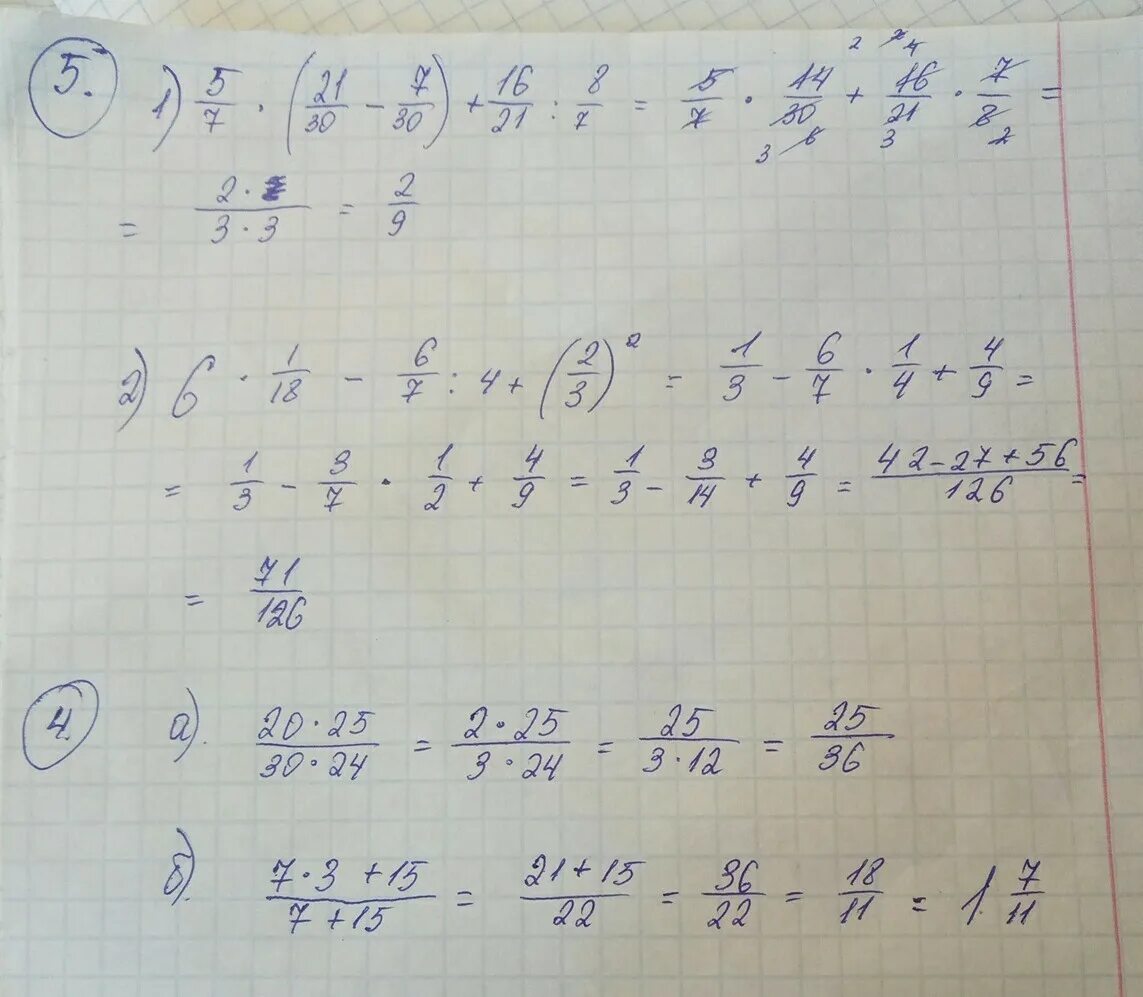 5.
1) 5/7 · (21/30 − 7/30) + 16/21 : 8/7 = 5/7 · 14/30 + 16/21 · 7/8 =
= 2 · / 3 · 3 = 2/9
2) 6 · 1/18 − 6/7 : 4 + (2/3)² = 1/3 − 6/7 · 1/4 + 4/9 =
= 1/3 − 3/7 · 1/2 + 4/9 = 1/3 − 3/14 + 4/9 = 42 − 27 + 56 / 126 =
= 71/126
4.
а). 20 · 25 / 30 · 24 = 2 · 25 / 3 · 24 = 25 / 3 · 12 = 25/36
б). 7 · 3 + 15 / 7 + 15 = 21 + 15 / 22 = 36/22 = 18/11 = 1 7/11